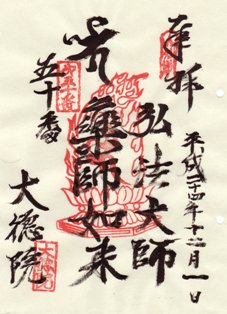 奉拝
平成二十四年十二月一日
弘法大師
藥師如来
五十番
大徳院